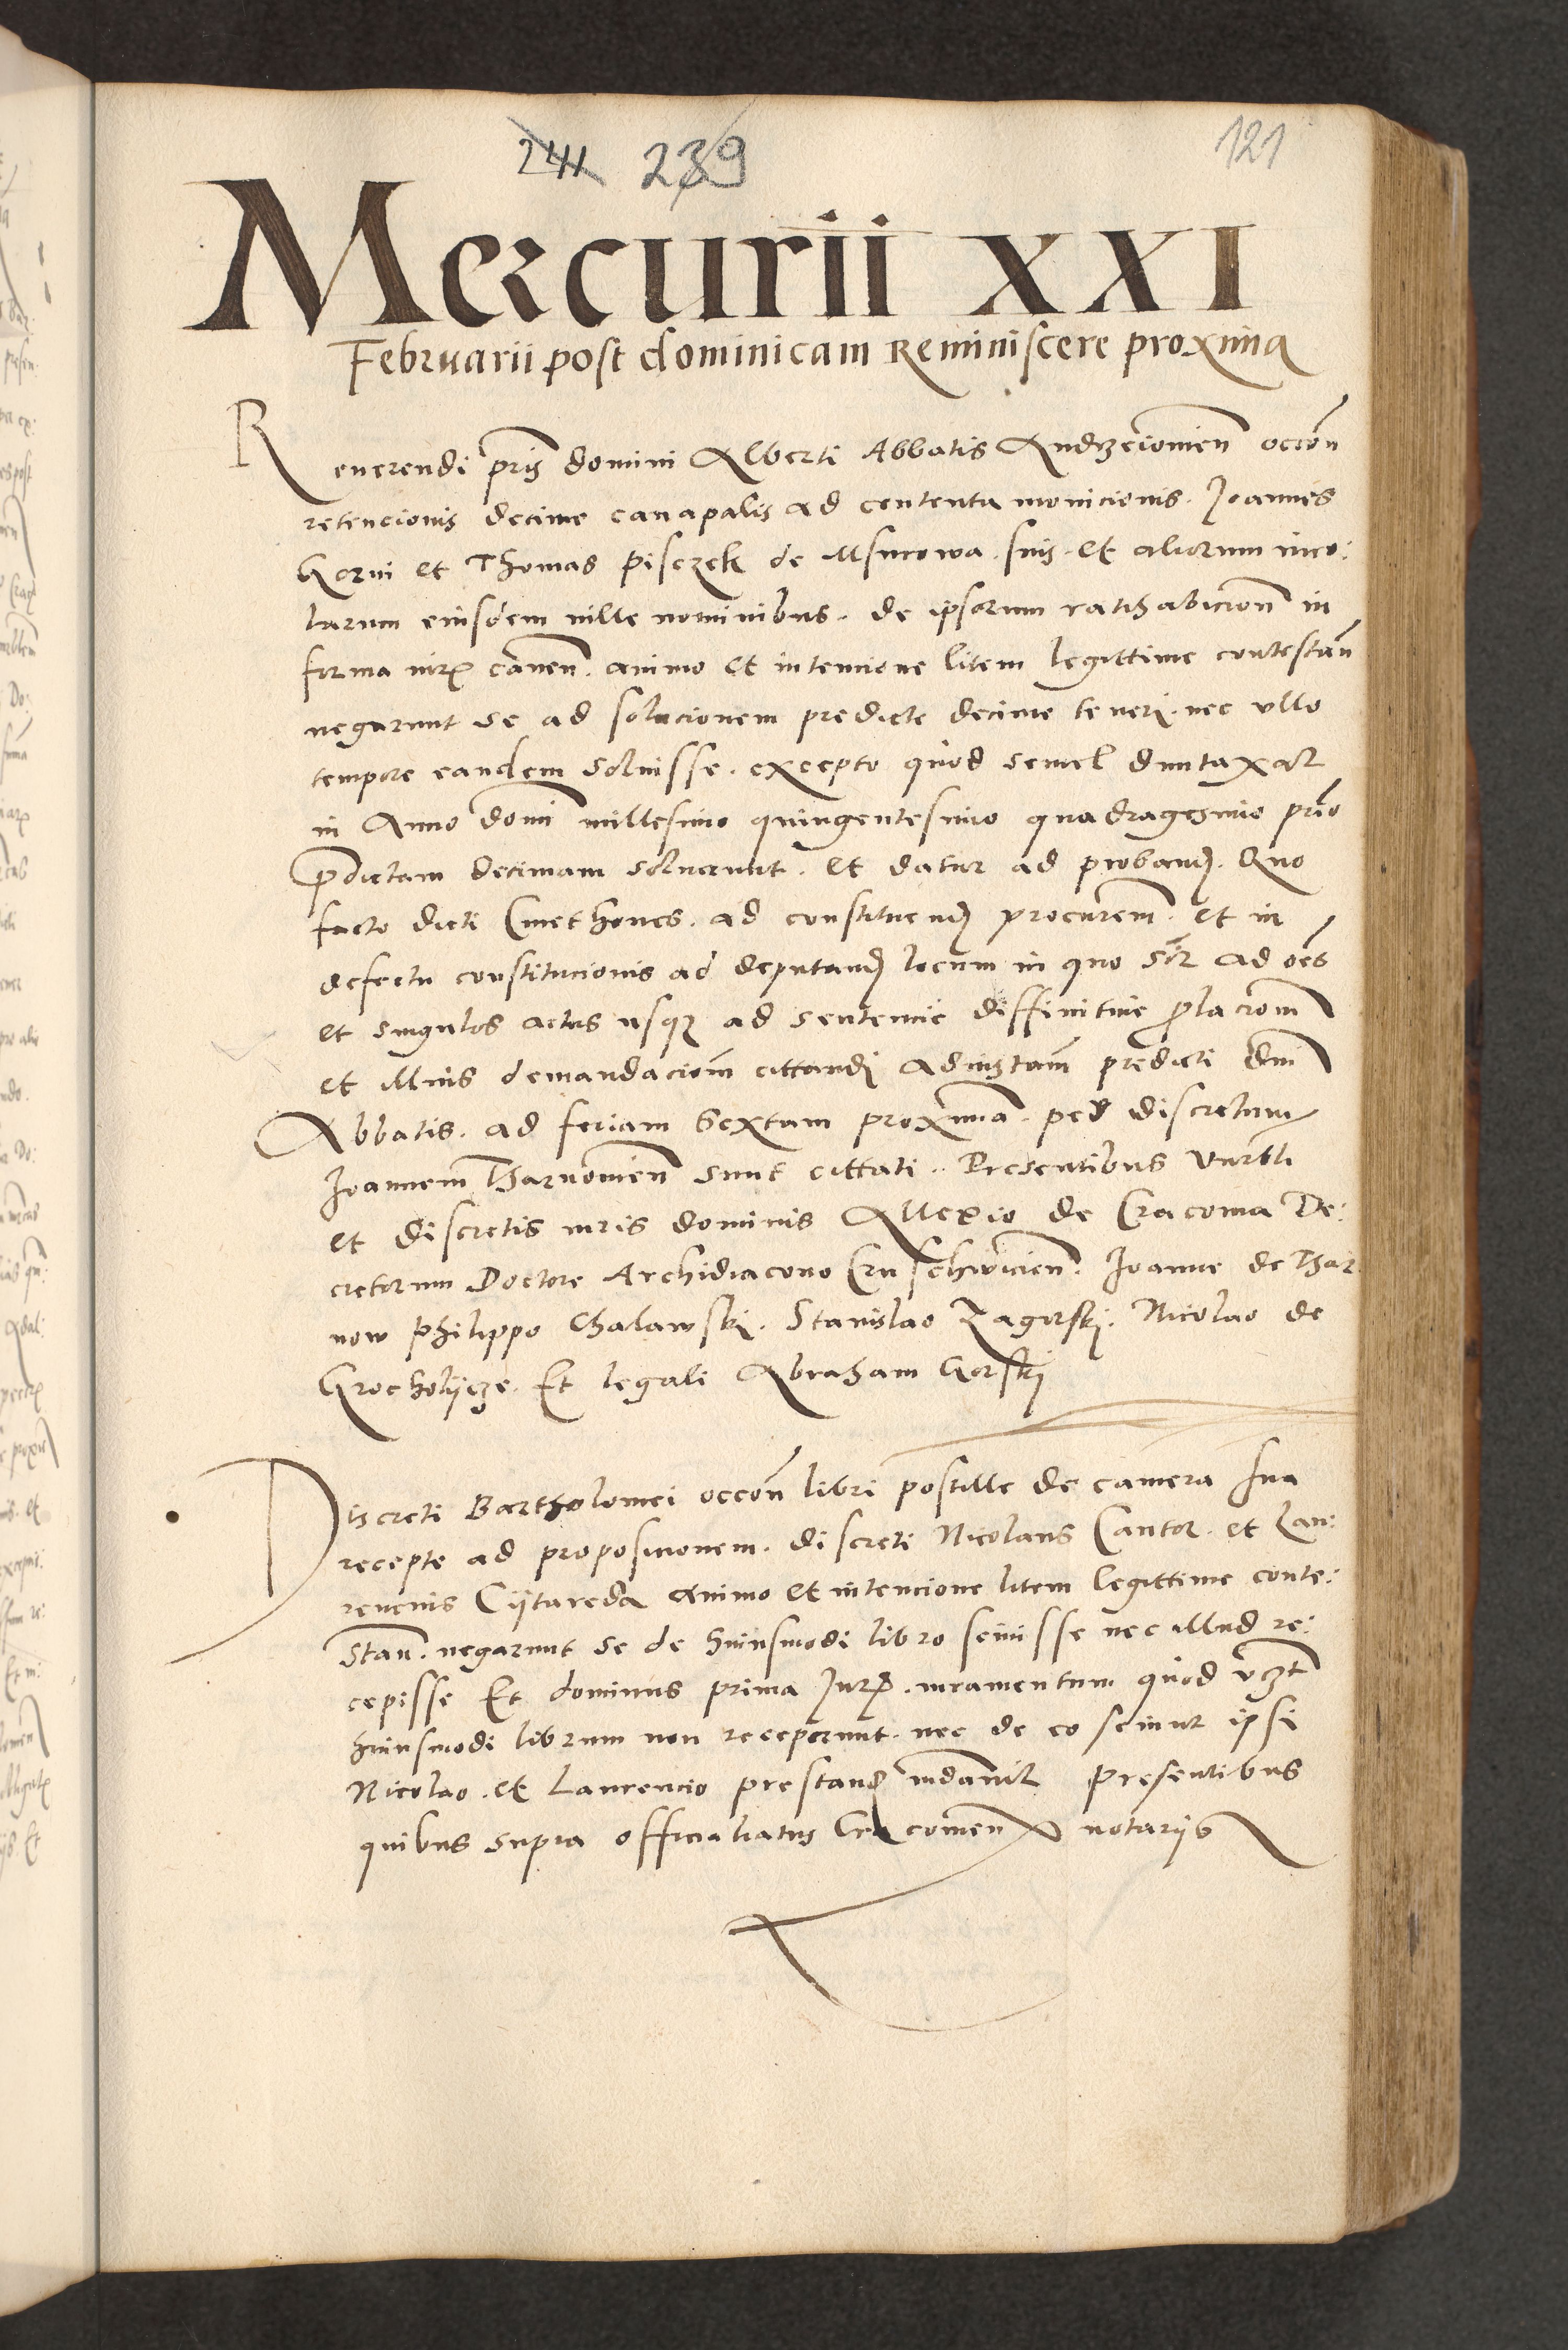 241 239
121
Mercurii XXI
Februarii post dominicam Reminiscere proxima
Reuerendi pris domini Alberti Abbatis Andrzeiouien occon
retencionis decime canapalis ad contenta monicionis. Joannes
Gorni et Thomas Pisczek de Msurowa. suis. et aliorum inco:
larum eiusdem ville nominibus. de ipsorum ratihabicion in
forma iuris cauen. animo et intencione litem legittime contestan
negarunt se ad solucionem predicte decime teneri. nec vllo
tempore eandem soluisse. excepto quod semel duntaxat
in Anno domi millesimo quingentesimo quadragesimo primo
predictam decimam soluerunt. et datur ad proband. Quo
facto dicti Cmethones. ad constituend procurem. et in
defectu constitucionis ad deputand locum in quo sir ad oes
et singulos actus usque ad sentencie diffinitiue prolaciom
et illius demandaciom cittandi ad instam predicti dni
Abbatis. ad feriam sextam proxima. per discretum
Joannem Tharnouien sunt cittati. Presentibus Venrbli
et discretis viris dominis Allexio de Cracouia De:
cretorum Doctore Archidiacono Cruschwicien. Joanne de Thar
now Philippo Chalawski. Stanislao Zagorski. Nicolao de
Grocholijcze. Et legali Abraham Gorski
Discreti Bartholomei occon libri postille de camera sua
recepte ad proposicionem. discreti Nicolaus Cantor. et Lau:
rencius Cijtareda animo et intencione litem legittime conte:
stan. negarunt se de huiusmodi libro sciuisse nec illud re:
cepisse Et dominus prima Jur. iuramentum quod vzt
huiusmodi librum non receperunt. nec de eo sciunt ipsi
Nicolao. et Laurencio prestand indauit presentibus
quibus supra officialatus Cracouien notarijs